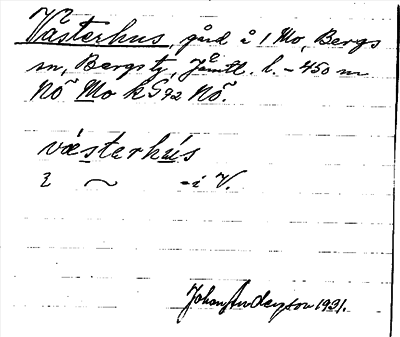 Västerhus, gård å 1 Mo, Bergs
sn, Bergs tg, Jämtl. l. – 450 m
NÕ Mo k S92 NÕ.
væsterhús
2 ~ - i V.
Johan Anderson 1931.